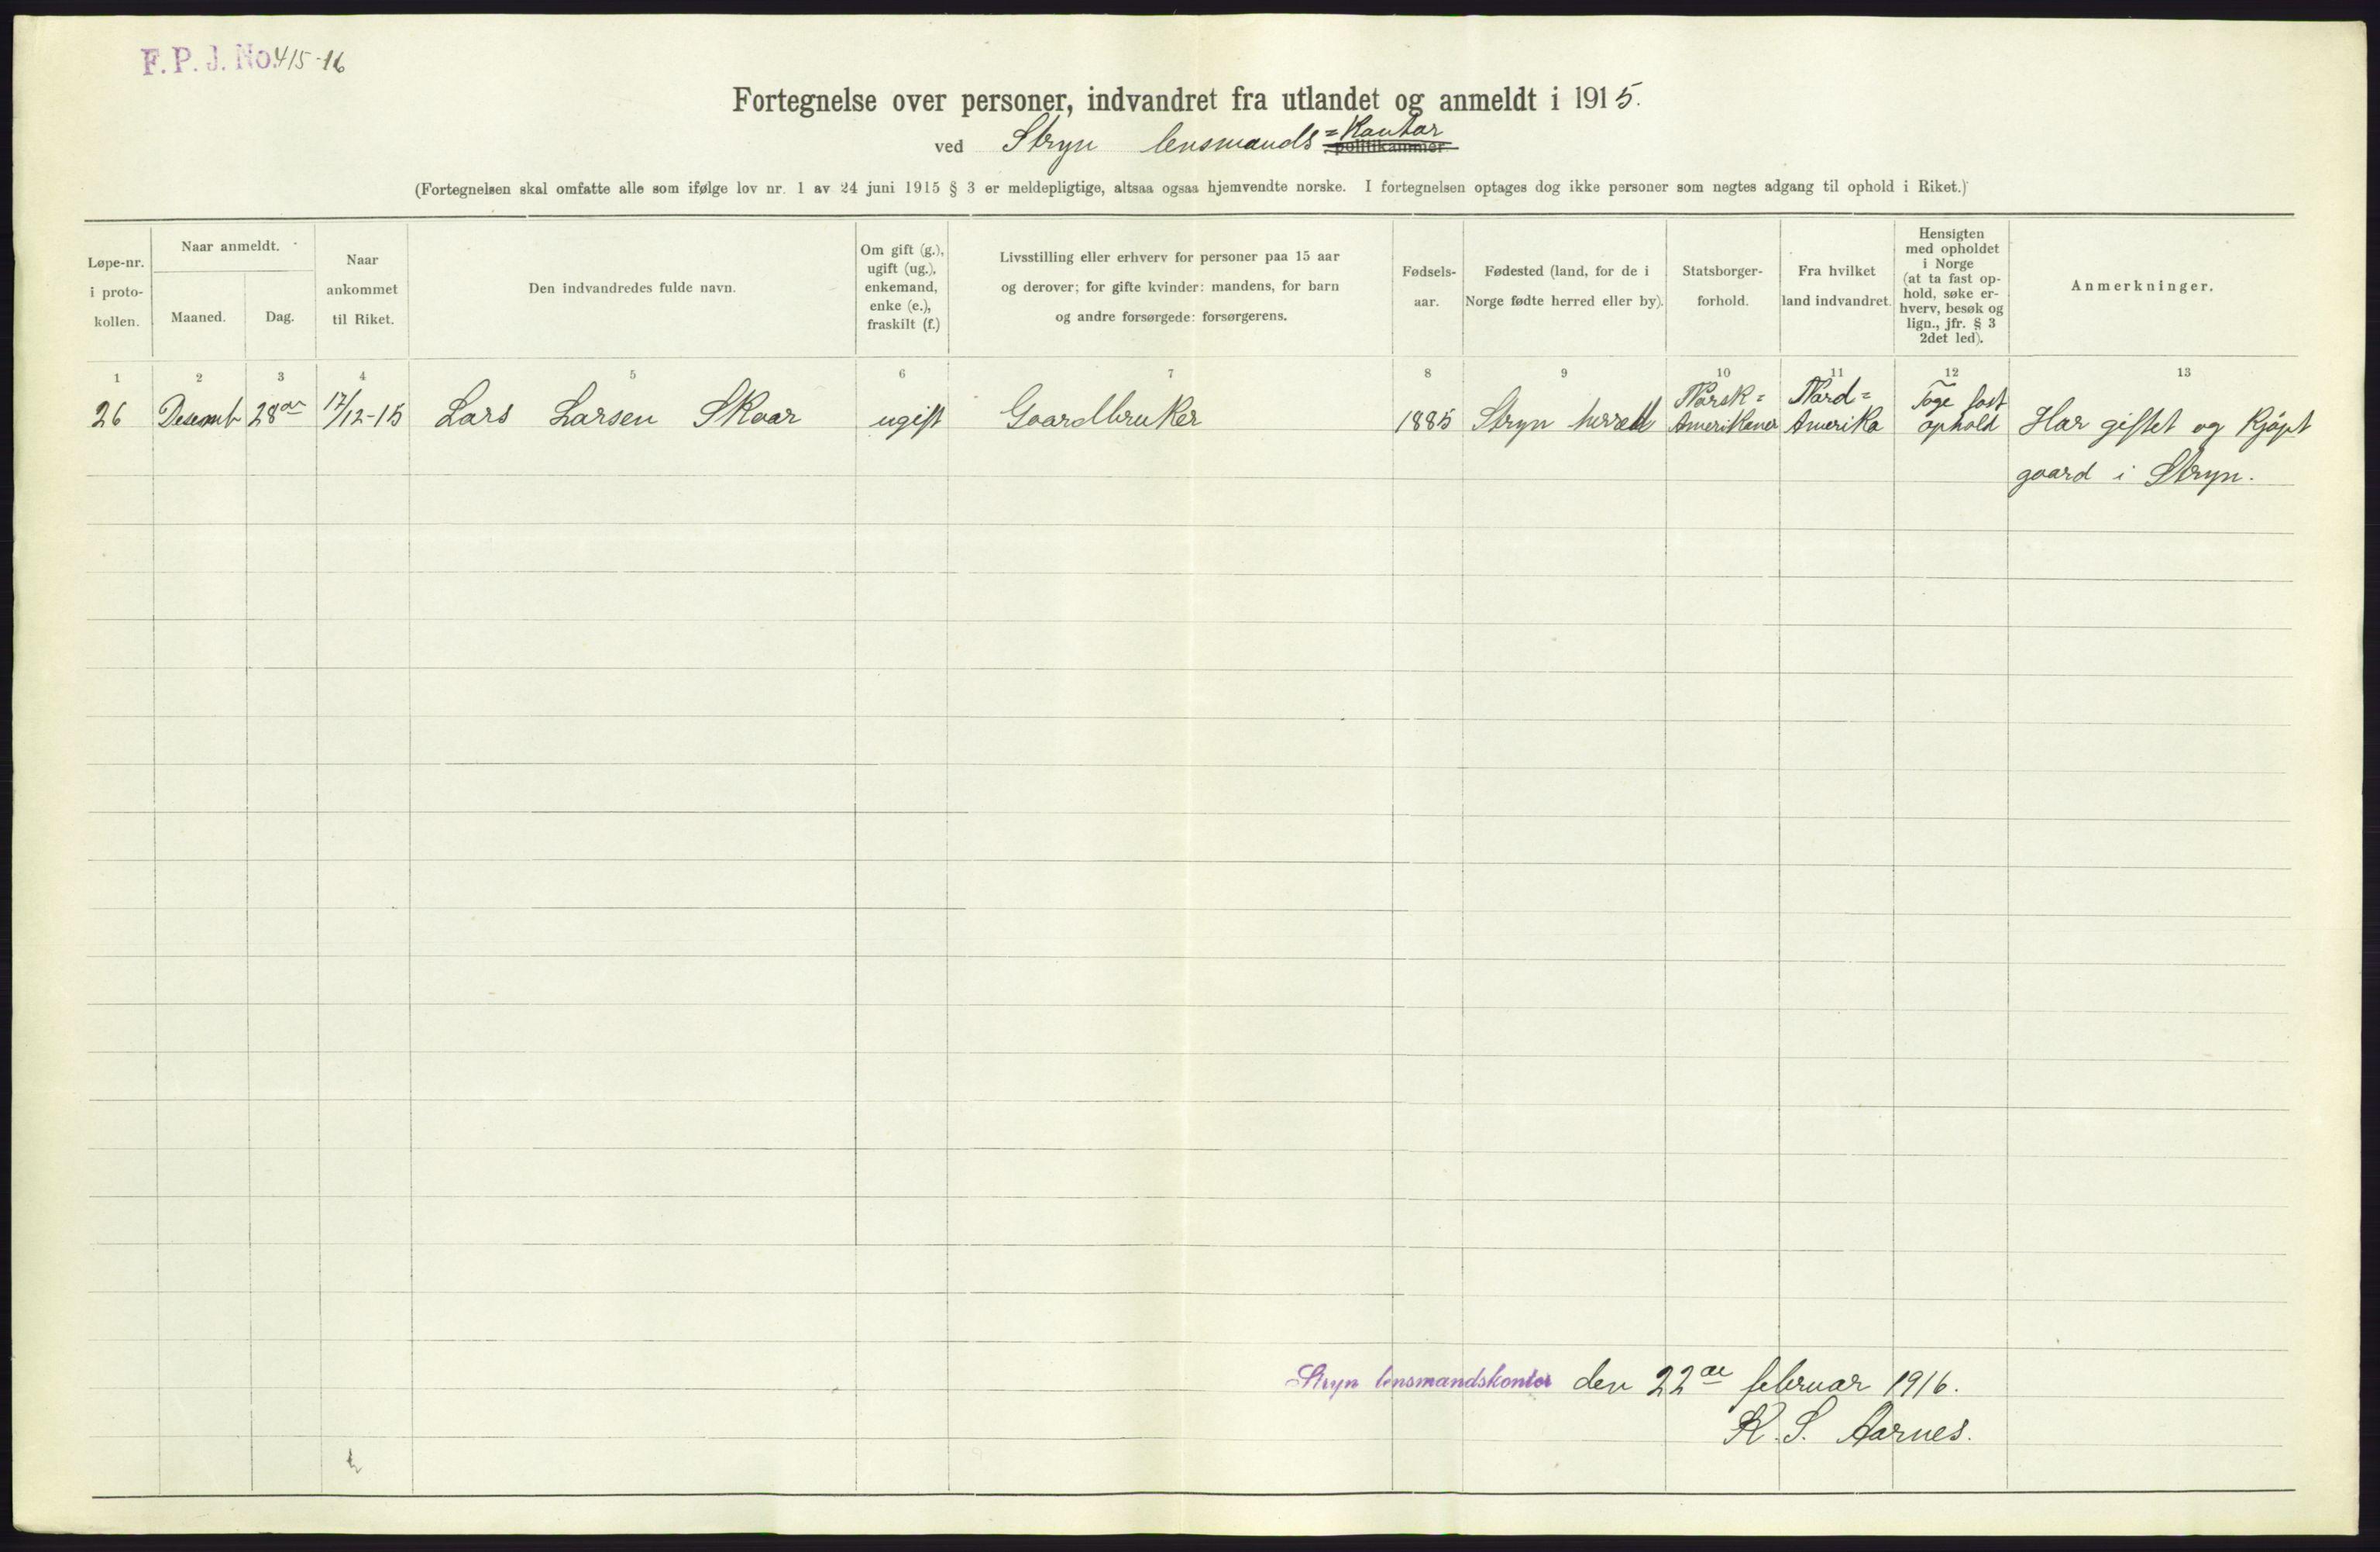 F. P. J. No. 415-16
Fortegnelse over personer, indvandret fra utlandet og anmeldt i 1915.
ved Stryn lensmands=Kontor politikammer
(Fortegnelsen skal omfatte alle som ifølge lov nr. 1 av 24 juni 1915 § 3 er meldepligtige, altsaa ogsaa hjemvendte norske. I fortegnelsen optages dog ikke personer som negtes adgang til ophold i Riket.)
Løpe-nr.
i proto-
kollen.
Naar anmeldt.
Maaned.
Dag.
Naar
ankommet
til Riket.
Den indvandredes fulde navn.
Om gift (g.),
ugift (ug.),
enkemand,
enke (e.),
fraskilt (f.)
Livsstilling eller erhverv for personer paa 15 aar
og derover; for gifte kvinder: mandens, for barn
og andre forsørgede: forsørgerens.
Fødsels-
aar.
Fødested (land, for de i
Norge fødte herred eller by).
Statsborger-
forhold.
Fra hvilket
land indvandret.
Hensigten
med opholdet
i Norge
(at ta fast op-
hold, søke er-
hverv, besøk og
lign., jfr. § 3
2det led).
Anmerkninger.
1 2 3 4 5 6 7 8 9 10 11 12 13
26
Desemb
28de
17/12-15
Lars Larsen Skaar
ugift
Gaardbruker
1885
Stryn herred
Norsk=
Amerikaner
Nord=
Amerika
Tage fast
ophold
Har giftet og kjøpt
gaard i Stryn.
Stryn lensmandskontor den 22de februar 1916.
K. S. Aarnes.